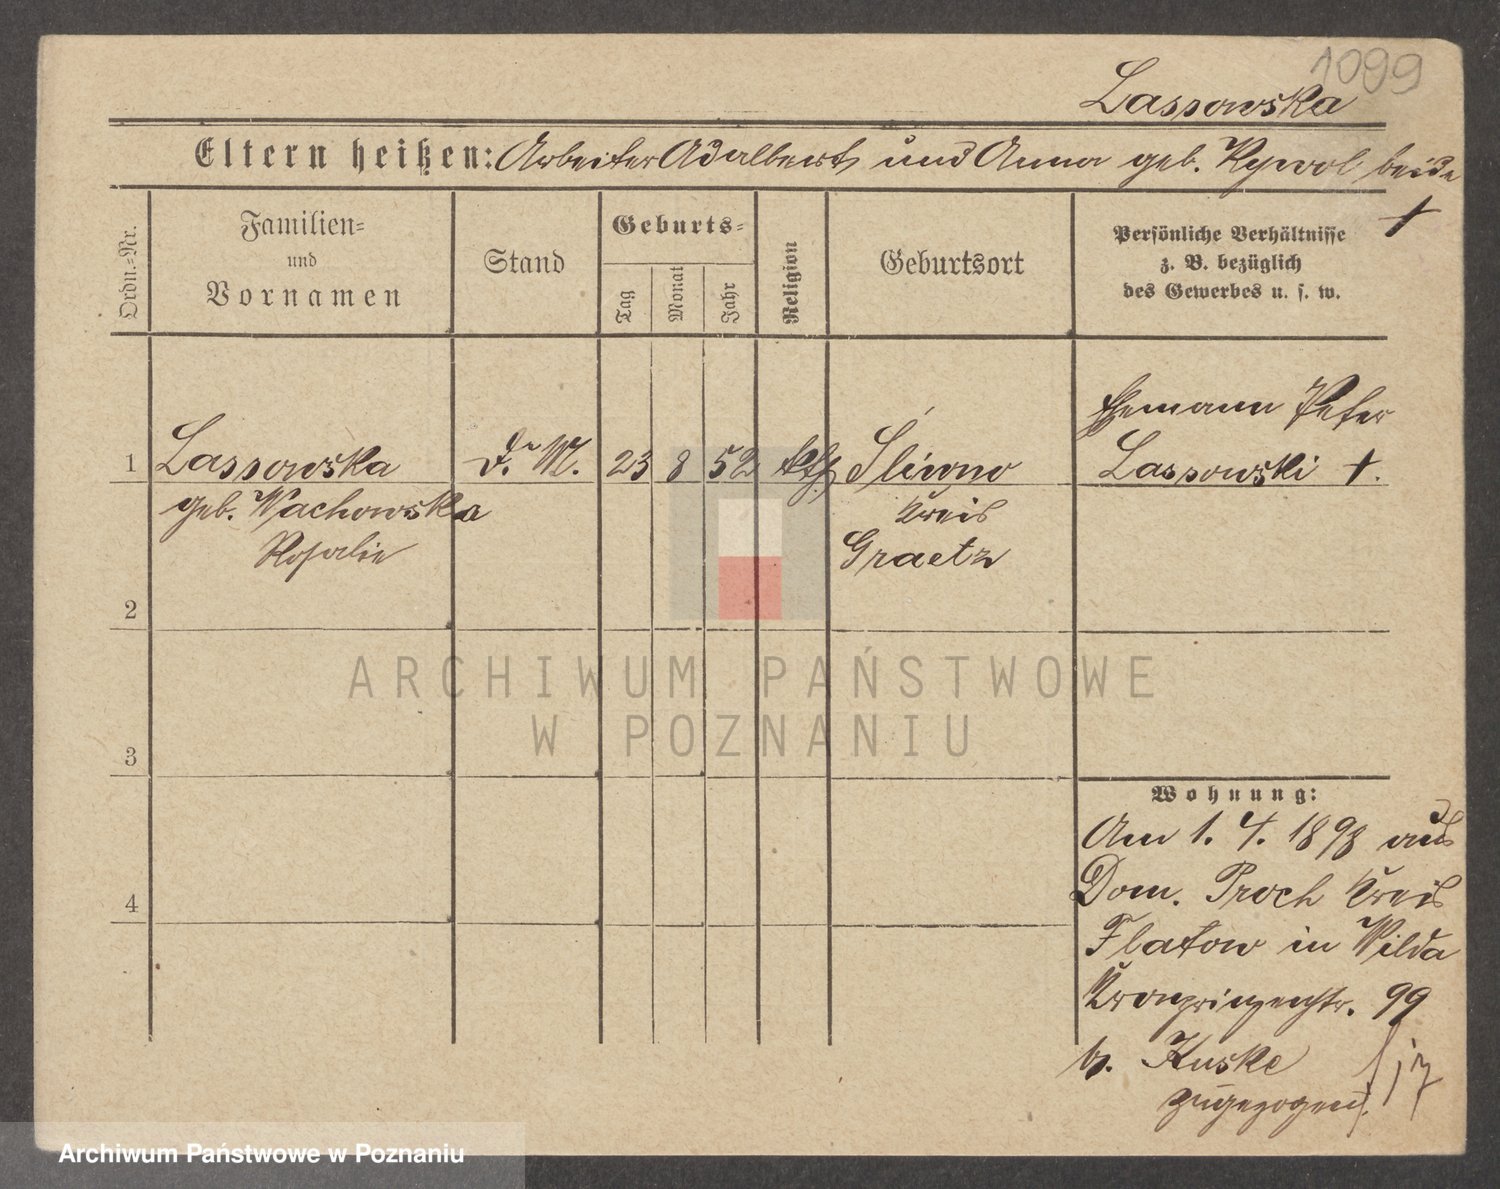 1099
Lassowska
Eltern heißen: Arbeiter Adalbert und Anna geb. Kywol beide
+
Ordn.=Nr.
Familien=
und
Vornamen
Stand
Geburts=
Tag
Monat
Jahr
Religion
Geburtsort
Persönliche Verhältnisse
z. B. bezüglich
des Gewerbes u. s. w.
Ehemann Peter
1 Lassowska D. M. 23 8 52 kth Śliwno Lassowski +.
geb. Wachowska Kreis
Rosalie Graetz
2
3
4
Wohnung:
Am 1. 4. 1898 aus
Dom. Proch Kreis
Flatow in Wilda
Kronprinzenstr. 99
b. Kuske
zugezogen.
ARCHIWUM PAŃSTWOWE
W POZNANIU
Archiwum Państwowe w Poznaniu